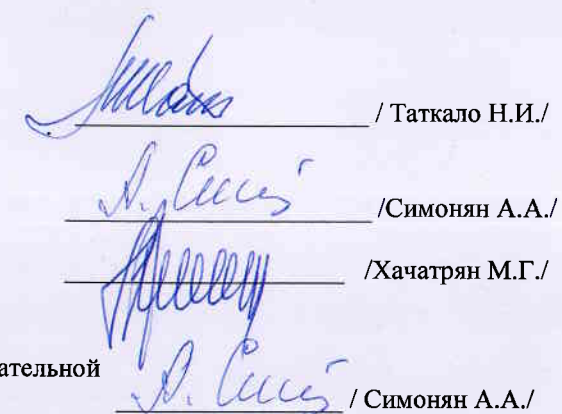 / Таткало Н.И./
/Симонян А.А./
/Хачатрян М.Г./
ательной
/ Симонян А.А./